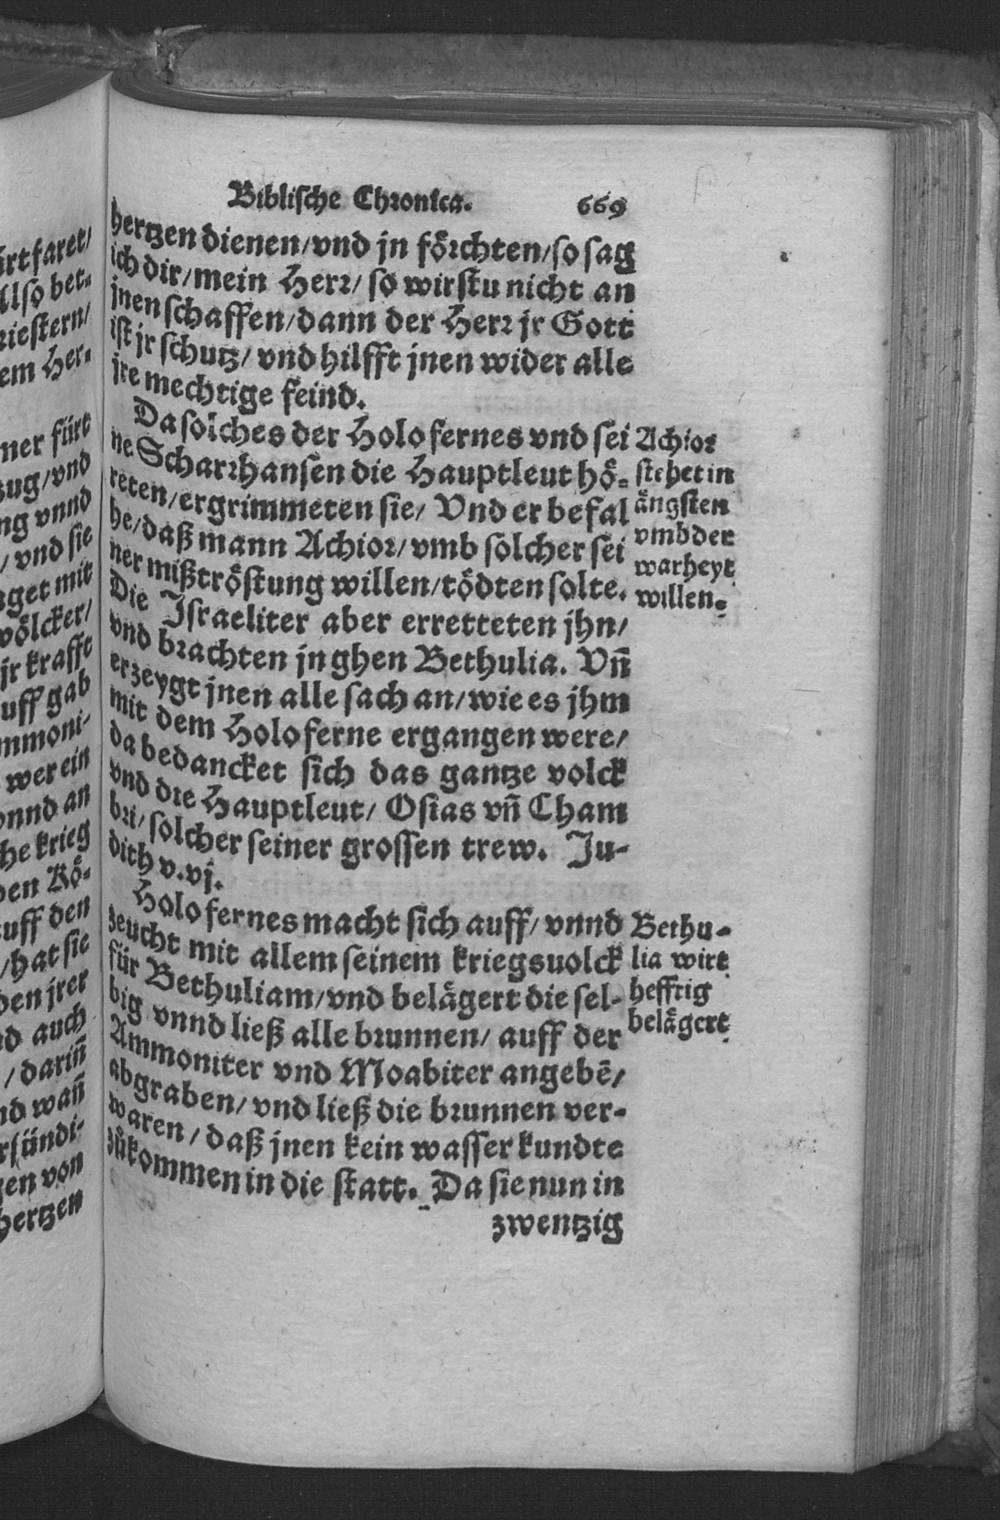 Biblische Chronica. 669
hertzen dienen/vnd jn förchten/so sag
ich dir/mein Herr/ so wirstu nicht an
jnen schaffen/dann der Herr jr Gott
ist jr schutz/ vnd hilfft jnen wider alle
jre mechtige feind.
Da solches der Holofernes vnd sei
ne Scharrhansen die Hauptleut hö-
reten/ergrimmeten sie/ Vnd er befal
he/daß mann Achior/vmb solcher sei
ner mißtröstung willen/tödten solte.
Die Israeliter aber erretteten jhn/
vnd brachten jn ghen Bethulia. Vñ
erzeygt jnen alle sach an/wie es jhm
mit dem Holoferne ergangen were/
da bedancket sich das gantze volck
vnd die Hauptleut/ Osias vñ Cham
bri/solcher seiner grossen trew. Ju-
dith v.vj.
Holofernes macht sich auff/vnnd
zeucht mit allem seinem kriegsuolck
für Bethuliam/vnd belägert die sel-
big vnnd ließ alle brunnen/ auff der
Ammoniter vnd Moabiter angebẽ/
abgraben/vnd ließ die brunnen ver-
waren/daß jnen kein wasser kundte
zůkommen in die statt. Da sie nun in
zwentzig
Achior
stehet in
ängsten
vmb der
warheyt
willen.
Bethu-
lia wirt
hefftig
belägert
ärt faret/
Also bet-
riestern/
em Her-
ner fürt
zug/vnd
ng vnnd
/vnd sie
get mit
völcker/
jr krafft
uff gab
mmoni-
wer ein
onnd an
he krieg
den Kö-
uff den
/hat sie
den jrer
nd auch
/darin̄
nd wañ
rsündi-
gen von
hertzen